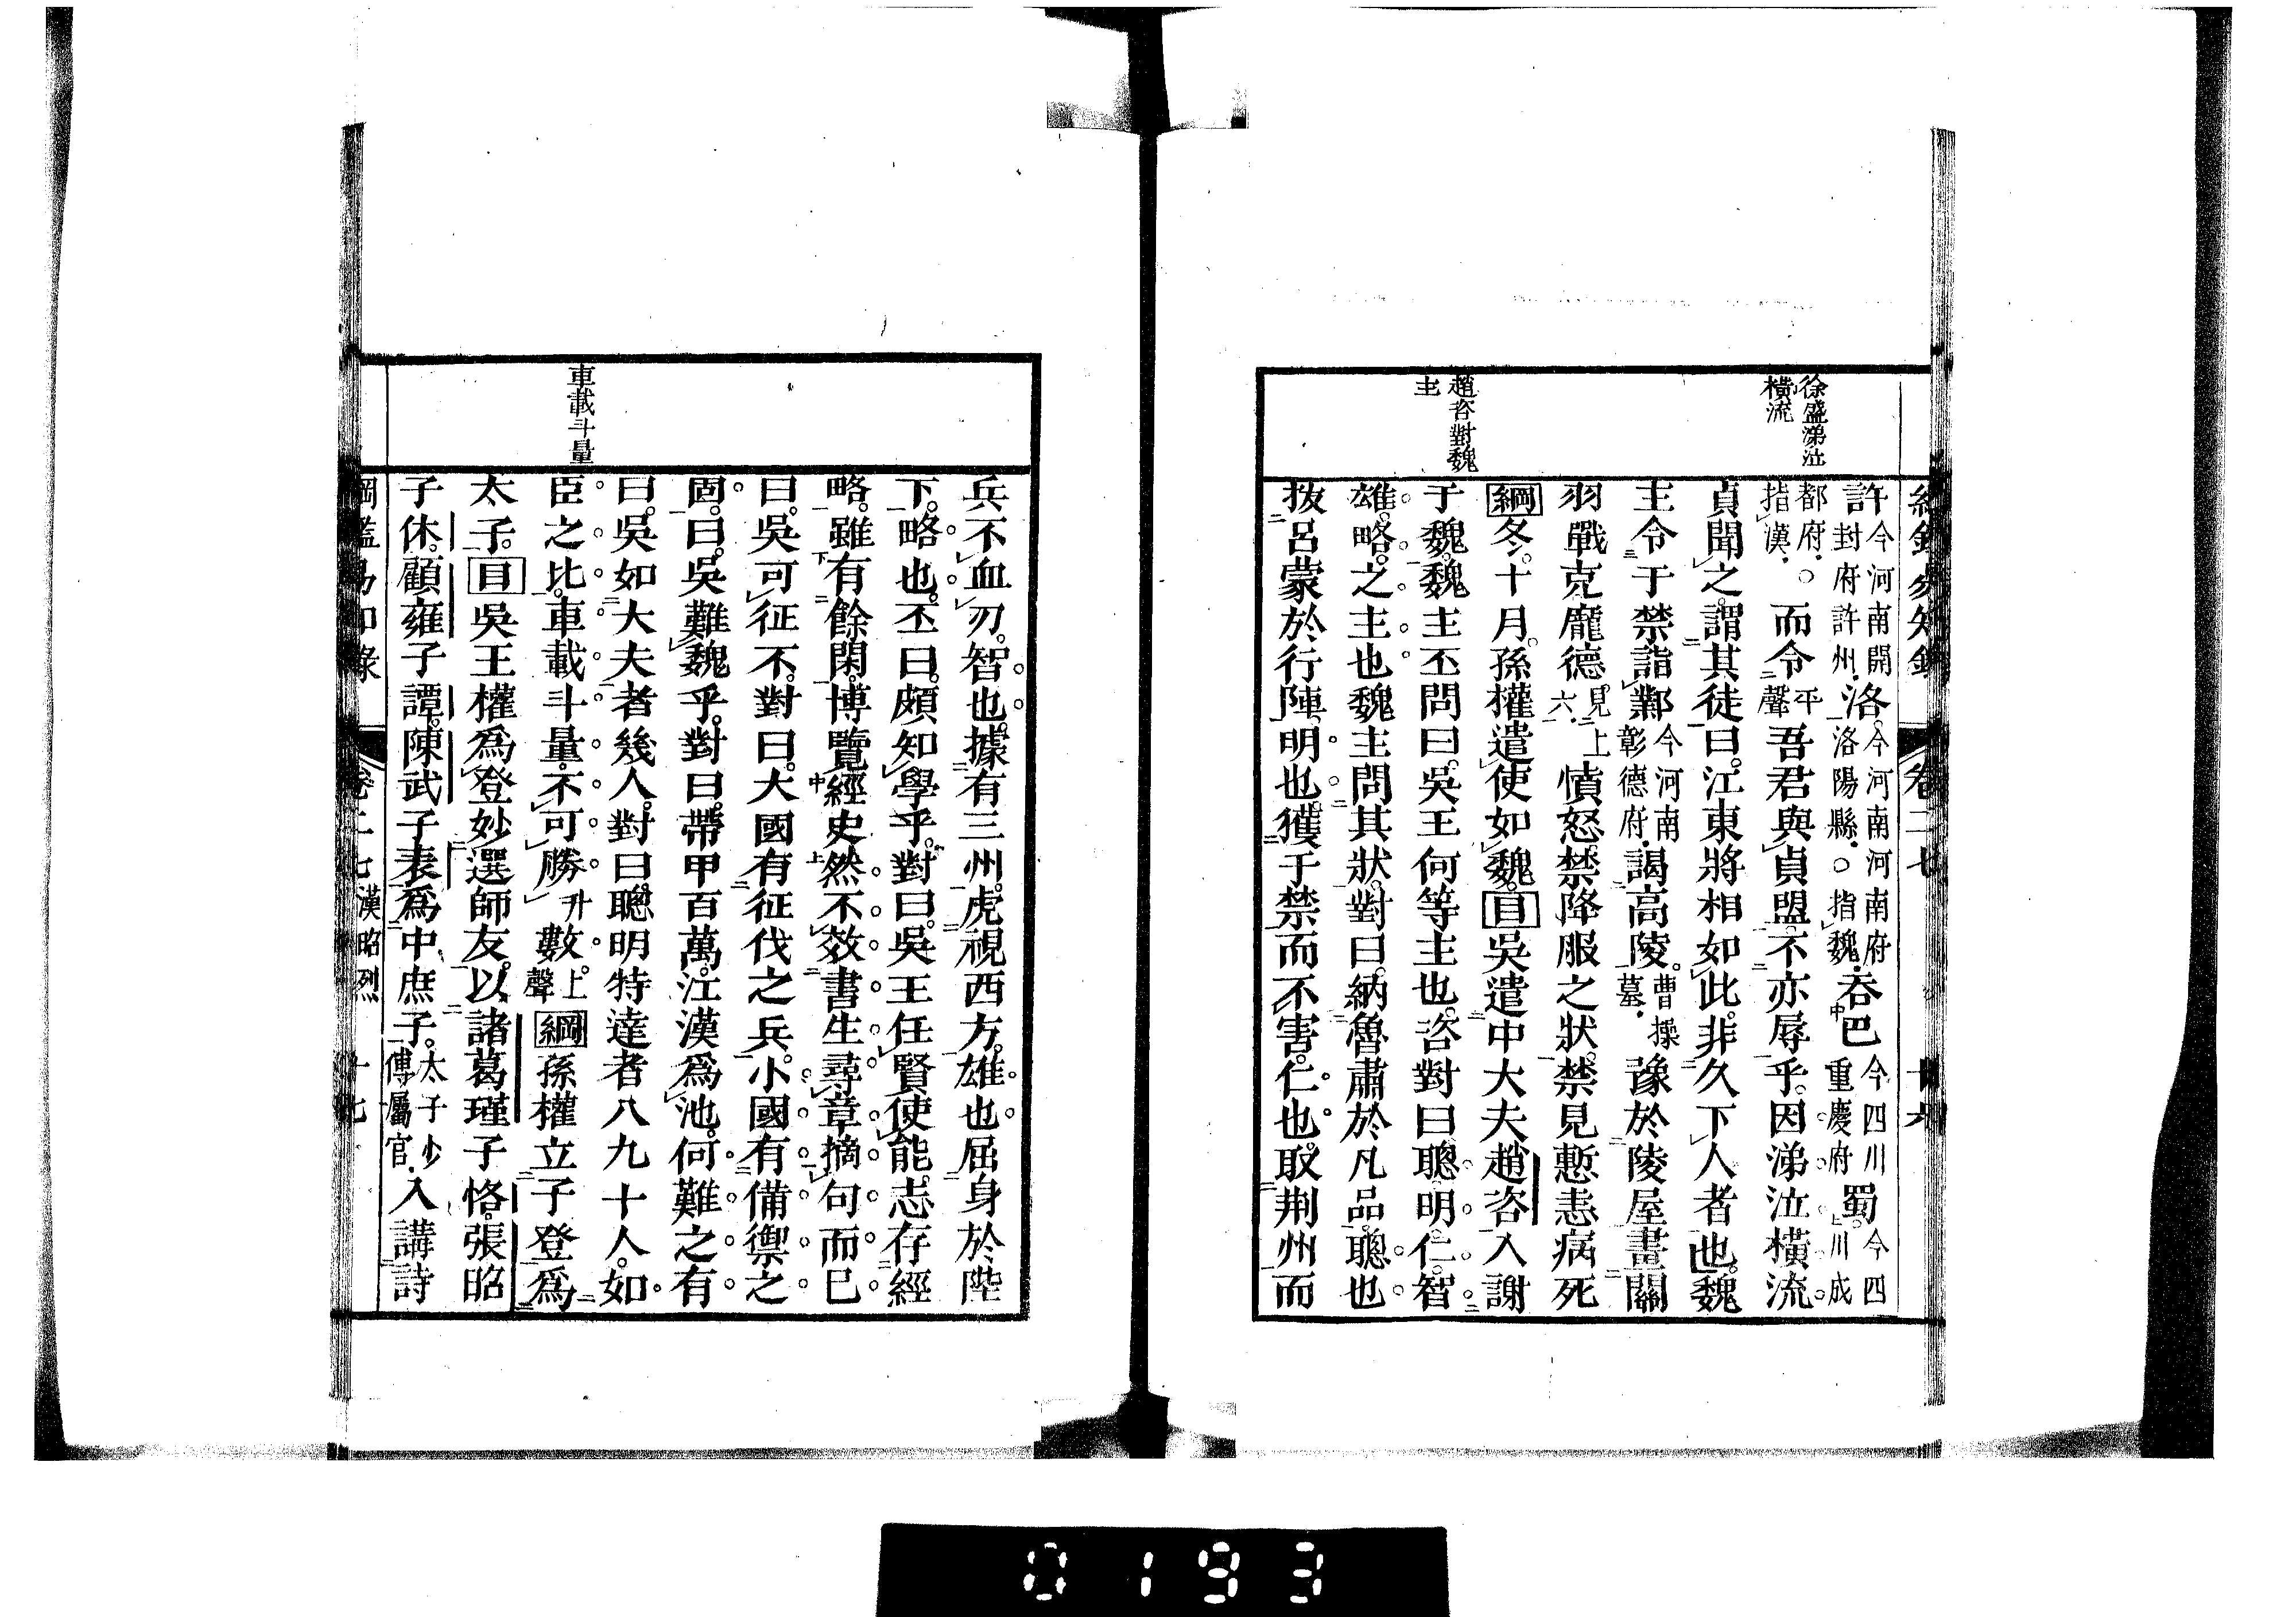 徐盛涕泣
橫流
趙咨對魏
主
許今河南開封府許州.洛。今河南河南府洛陽縣.○指魏.吞巴今四川重慶府蜀。今四川成
都府.○指漢.而令平聲吾君與貞盟。不亦辱乎。因涕泣橫流。
貞聞之。謂其徒曰。江東將相如此。非久下人者也。魏
主令于禁詣鄴今河南彰德府.謁高陵。曹操墓.豫於陵屋畫關
羽戰克龐德。見上六.憤怒。禁降服之狀。禁見慙恚病死
綱冬。十月。孫權遣使如魏。目吳遣中大夫趙咨入謝
于魏。魏主丕問曰。吳王何等主也。咨對曰聰明。仁。智。
雄。略。之主也魏主問其狀。對曰。納魯肅於凡品。聰也
拔呂蒙於行陣。明也。獲于禁而不害。仁也。取荆州而
卷二七
兵不血刃。智也。據有三州。虎視西方。雄也屈身於陛
下。略也。丕曰。頗知學乎。對曰。吳王任賢使能。志存經
略。雖有餘閑。博覽經史。然不效書生尋章摘句而已
曰。吳可征不。對曰。大國有征伐之兵。小國有備禦之
固。曰。吳難魏乎。對曰。帶甲百萬。江漢爲池。何難之有
曰。吳如大夫者幾人。對曰。聰明特達者八九十人。如
臣之比。車載斗量。不可勝升數。上聲綱孫權立子登爲
太子。目吳王權爲登妙選師友。以諸葛瑾子恪。張昭
子休。顧雍子譚。陳武子表爲中庶子。太子少傅屬官.入講詩
車載斗量
綱鑑易知錄 卷二七漢昭烈 十七